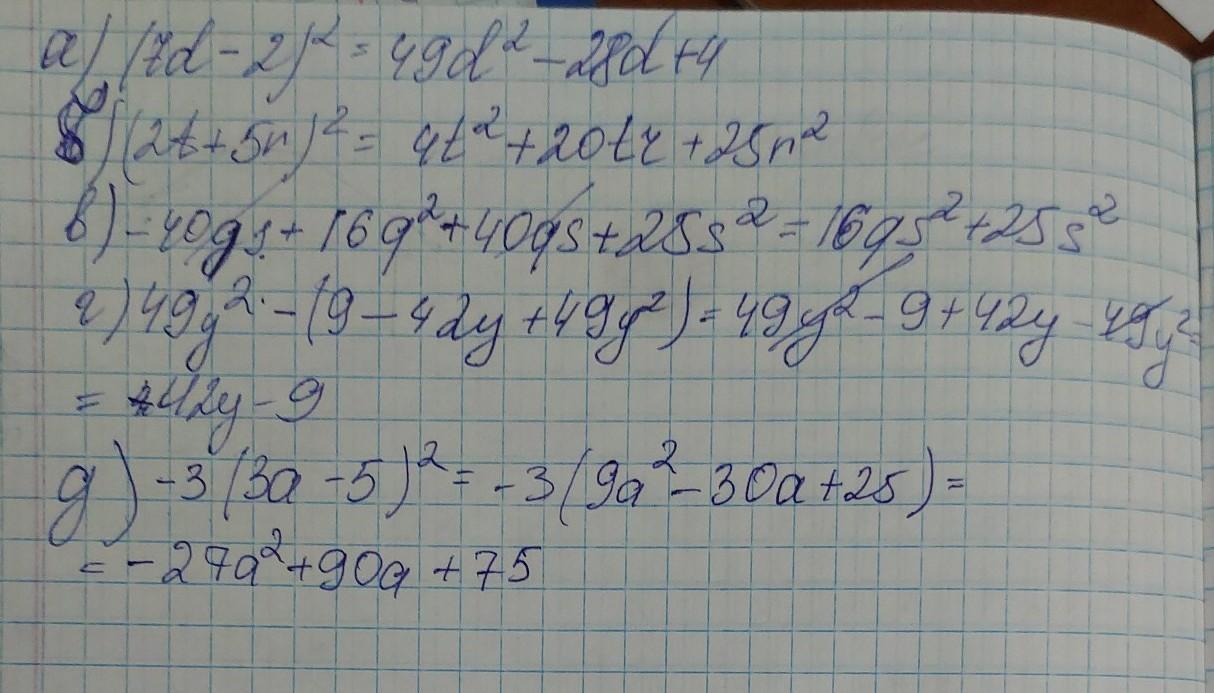 а) (7d - 2)² = 49d² - 28d + 4
б) (2t + 5r)² = 4t² + 20tr + 25r²
в) - 40qs + 16q² + 40qs + 25s² = 16qs² + 25s²
г) 49y² - (9 - 42y + 49y²) = 49y² - 9 + 42y - 49y² =
= 42y - 9
д) -3(3a - 5)² = -3(9a² - 30a + 25) =
= -27a² + 90a + 75